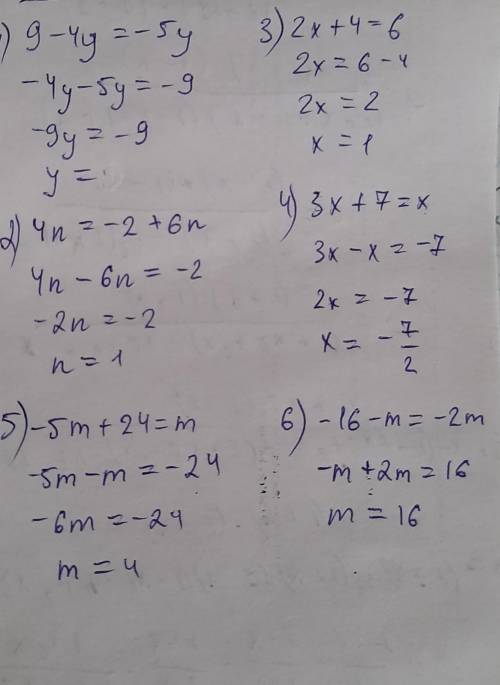 1) 9 - 4y = -5y
-4y - 5y = -9
-9y = -9
y =
2) 4n = -2 + 6n
4n - 6n = -2
-2n = -2
n = 1
3) 2x + 4 = 6
2x = 6 - 4
2x = 2
x = 1
4) 3x + 7 = x
3x - x = -7
2x = -7
x = -7/2
5) -5m + 24 = m
-5m - m = -24
-6m = -24
m = 4
6) -16 - m = -2m
-m + 2m = 16
m = 16